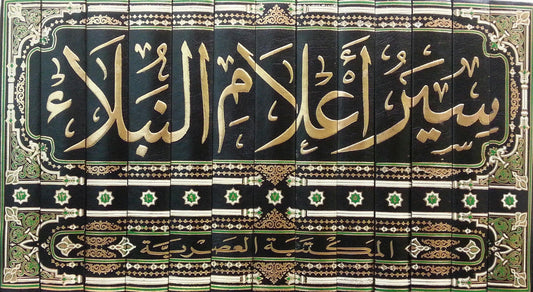 سِيَرُ أَعْلَامِ النُّبَلَاءِ
المكتبة العصرية